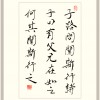 子路问闻斯行诸
子曰有父兄在如之
何其闻斯行之